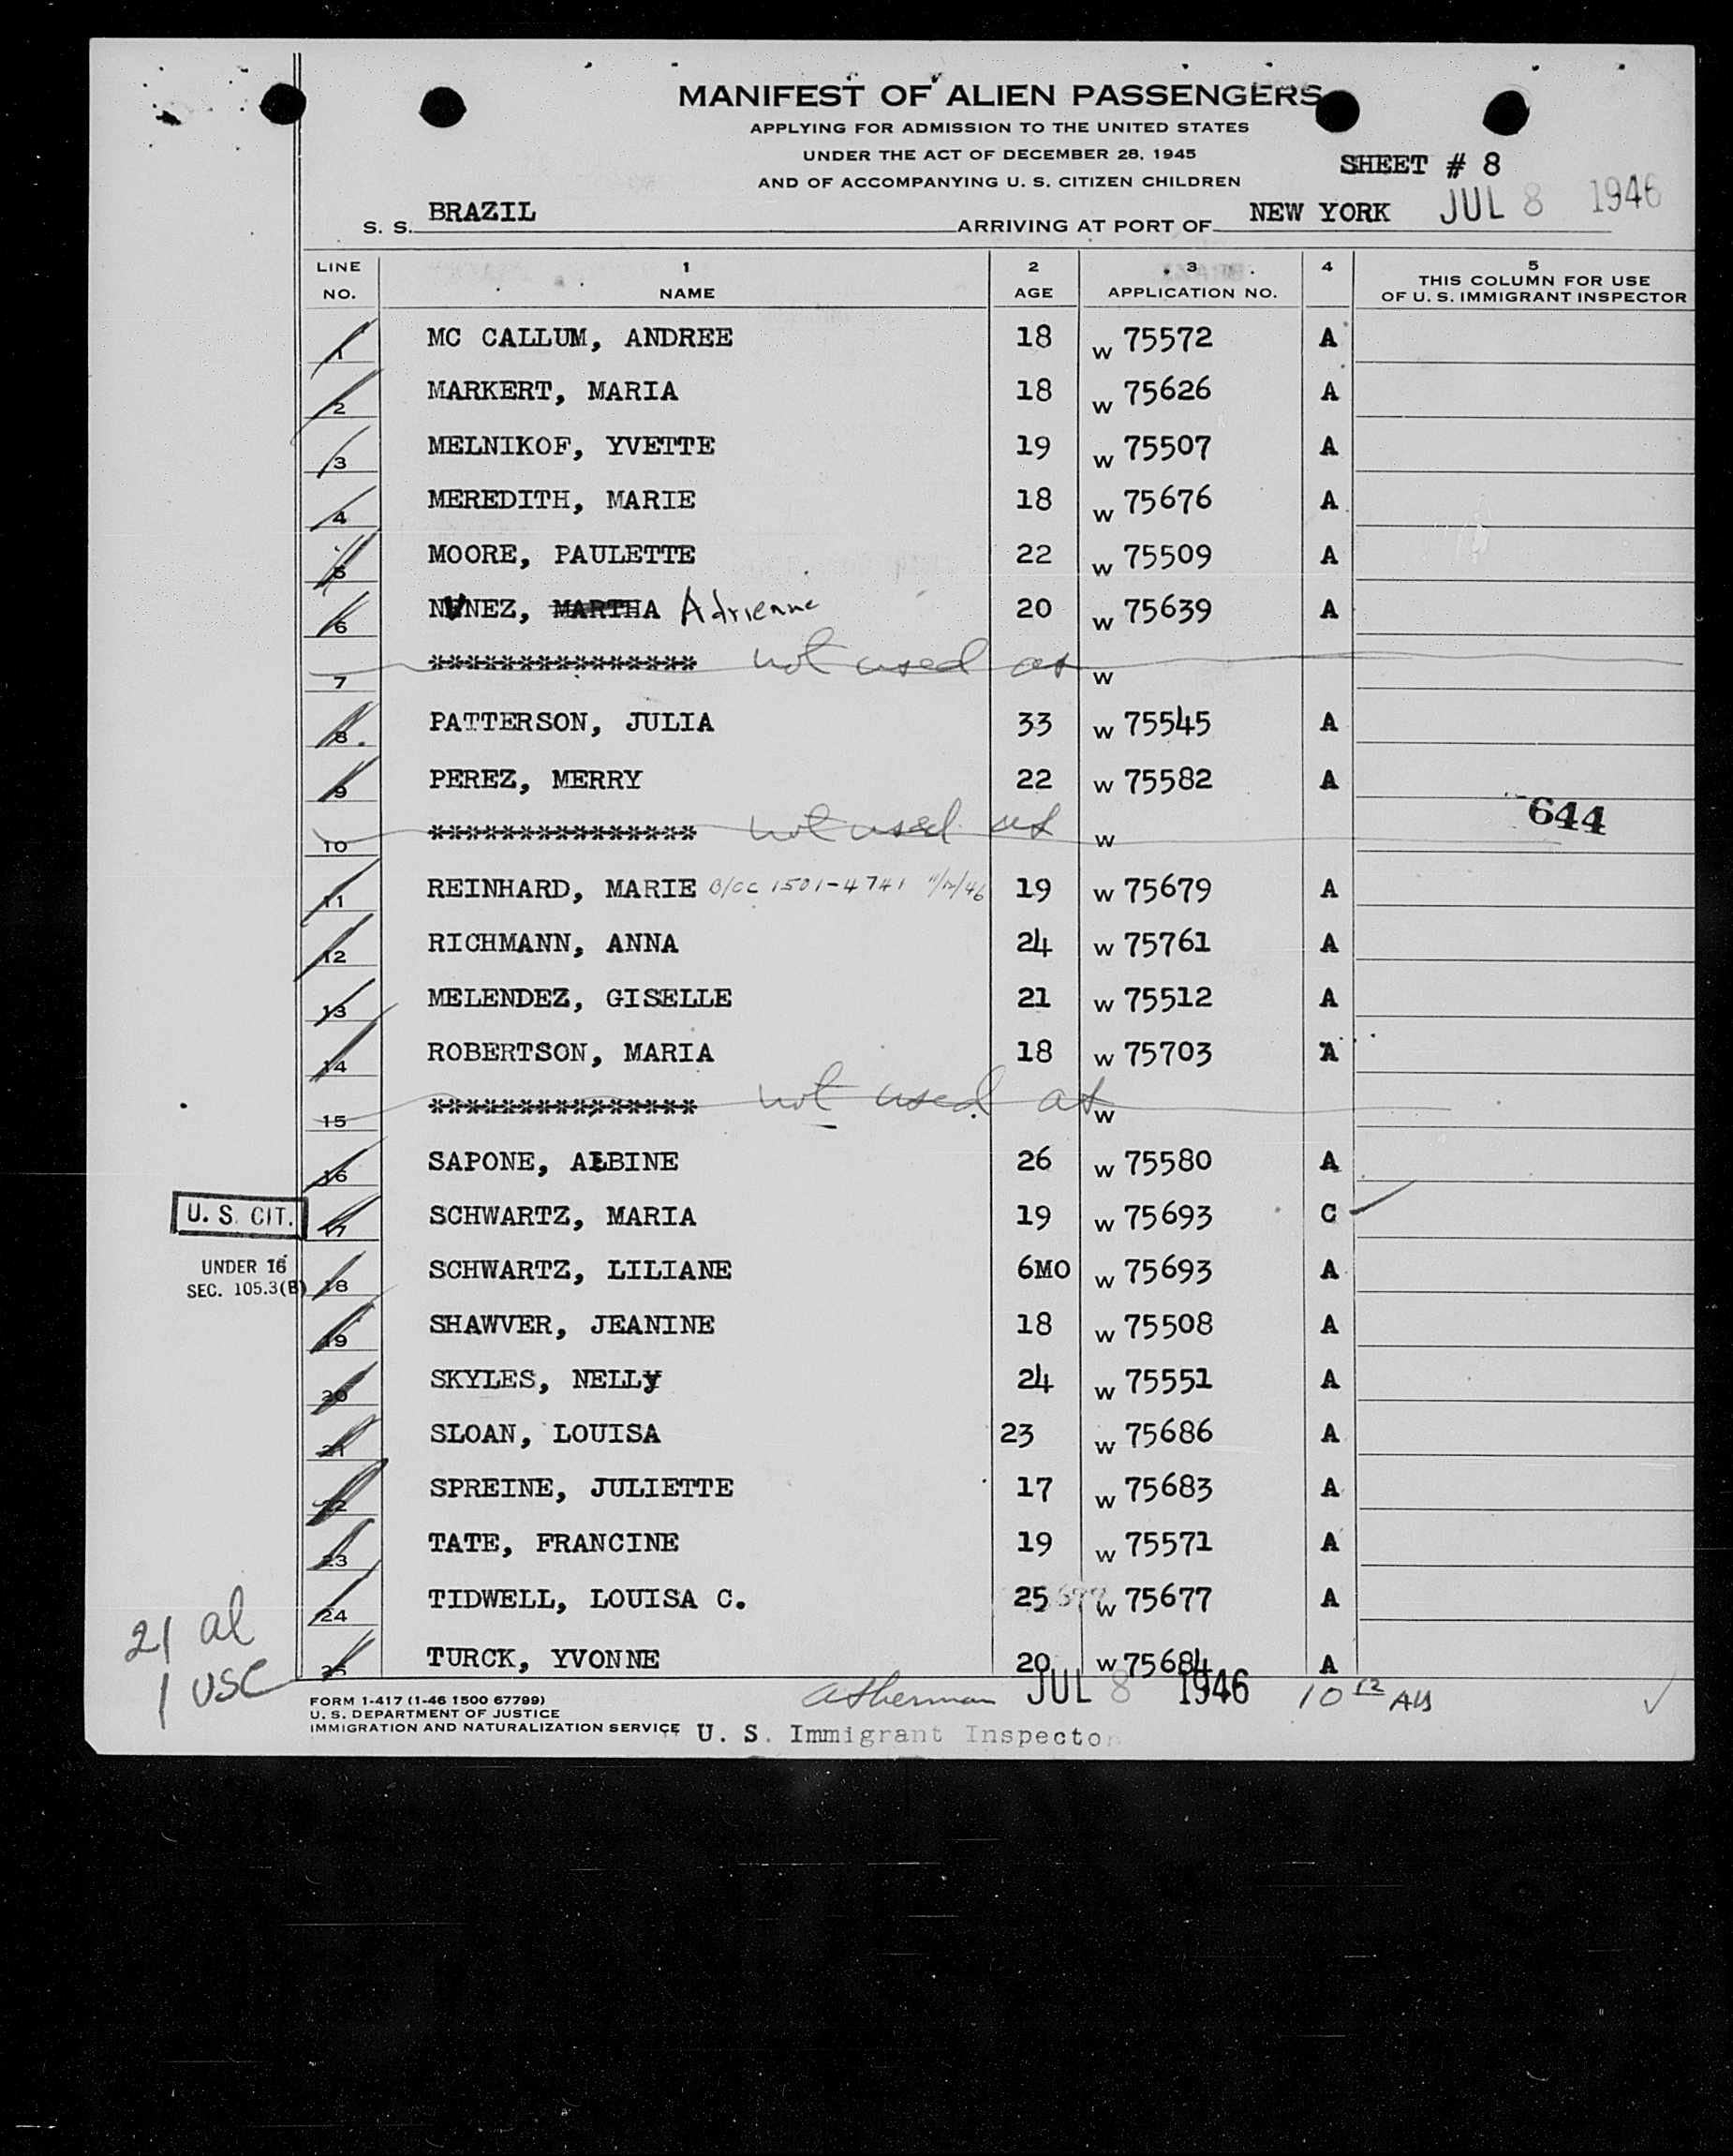 MANIFEST OF ALIEN PASSENGERS
APPLYING FOR ADMISSION TO THE UNITED STATES
UNDER THE ACT OF DECEMBER 28, 1945
AND OF ACCOMPANYING U. S. CITIZEN CHILDREN
SHEET # 8
S. S. BRAZIL ARRIVING AT PORT OF NEW YORK JUL 8 1946
LINE NO. 1 NAME 2 AGE 3 APPLICATION NO. 4 5 THIS COLUMN FOR USE OF U. S. IMMIGRANT INSPECTOR
1 MC CALLUM, ANDREE 18 W 75572 A
2 MARKERT, MARIA 18 W 75626 A
3 MELNIKOF, YVETTE 19 W 75507 A
4 MEREDITH, MARIE 18 W 75676 A
5 MOORE, PAULETTE 22 W 75509 A
6 NUNEZ, MARTHA Adrienne 20 W 75639 A
7 *************** not used as W
8 PATTERSON, JULIA 33 W 75545 A
9 PEREZ, MERRY 22 W 75582 A
644
10 *************** not used as W
11 REINHARD, MARIE 1501-4741 19 W 75679 A
12 RICHMANN, ANNA 24 W 75761 A
13 MELENDEZ, GISELLE 21 W 75512 A
14 ROBERTSON, MARIA 18 W 75703 A
15 *************** not used as W
16 SAPONE, ALBINE 26 W 75580 A
U. S. CIT. 17 SCHWARTZ, MARIA 19 W 75693 C
UNDER 16
SEC. 105.3(B) 18 SCHWARTZ, LILIANE 6MO W 75693 A
19 SHAWVER, JEANINE 18 W 75508 A
20 SKYLES, NELLY 24 W 75551 A
21 SLOAN, LOUISA 23 W 75686 A
22 SPREINE, JULIETTE 17 W 75683 A
23 TATE, FRANCINE 19 W 75571 A
24 TIDWELL, LOUISA C. 25 W 75677 A
25 TURCK, YVONNE 20 W 75684 A
21 al
1 USC
FORM 1-417 (1-46 1500 67799)
U. S. DEPARTMENT OF JUSTICE
IMMIGRATION AND NATURALIZATION SERVICE
JUL 8 1946
U. S. Immigrant Inspector